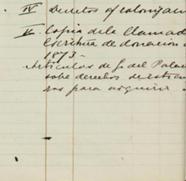 IV Decretos of colonizac
V Copia de la llamada
Escritura de donacion d
1873-
Articulos de J. del Palac
sobre derechos de estran
ros para adquirir